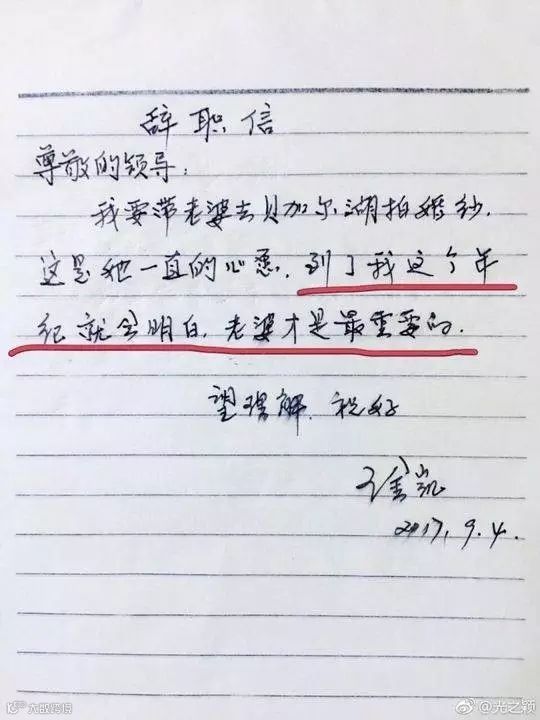 辞职信
尊敬的领导:
我要带老婆去贝加尔湖拍婚纱.
这是她一直的心愿.到了我这个年
纪就会明白.老婆才是最重要的.
望理解.祝好
凯
2017.9.4.
大数跨境
@光之颖